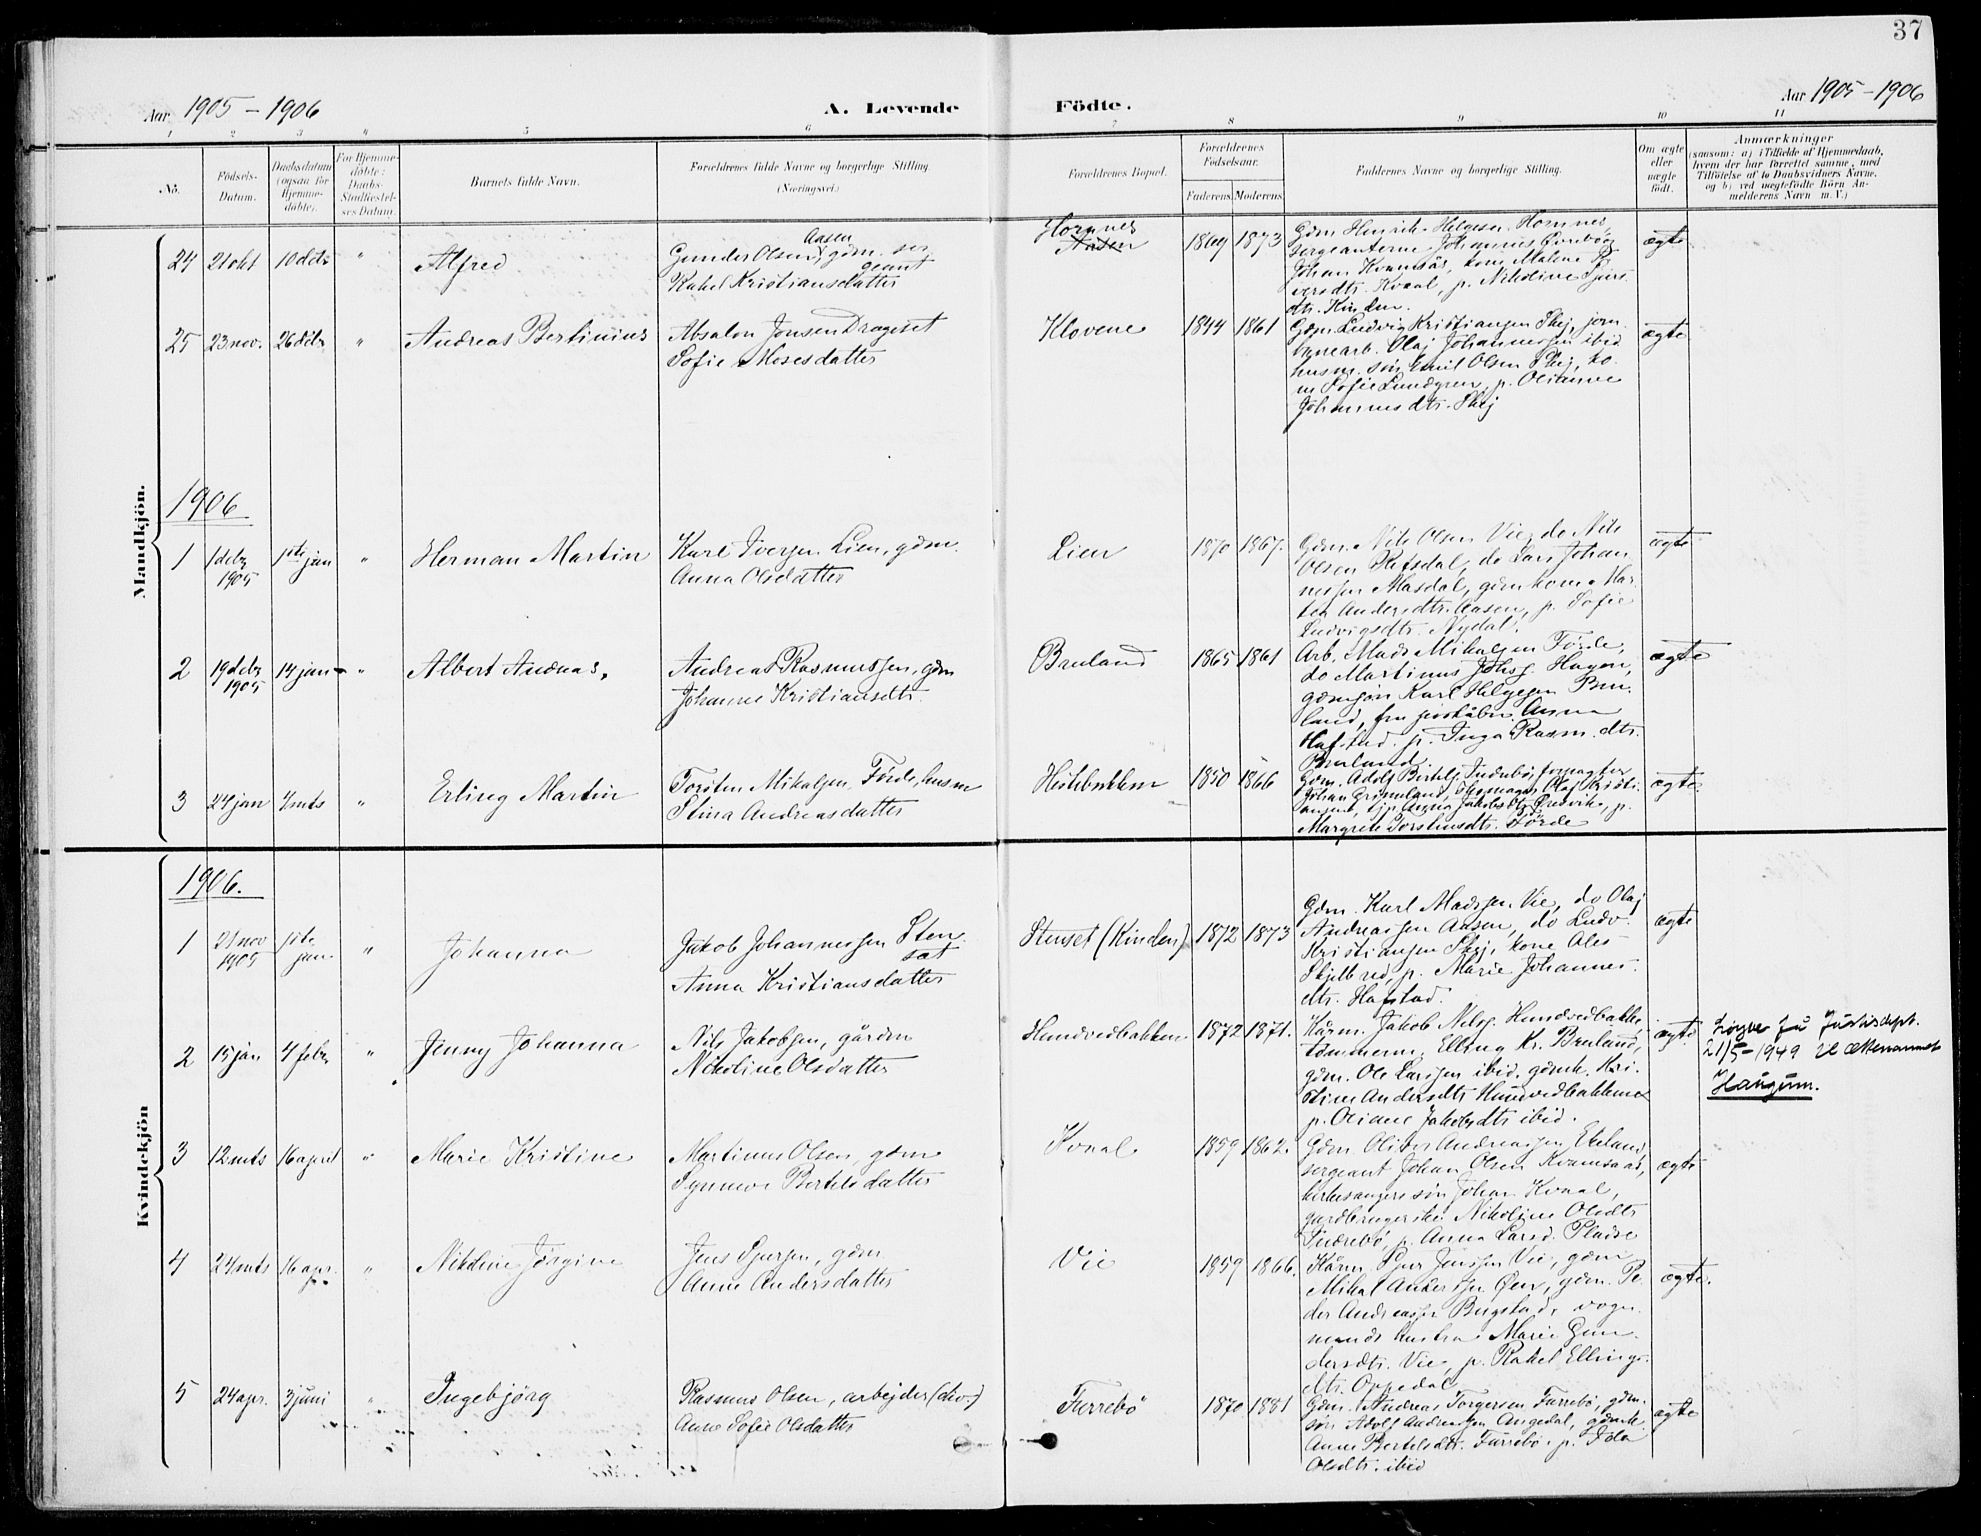 37
Aar 1905 – 1906
A. Levende
Födte.
Aar 1905 – 1906
1 2 3 " 5 6 7 8 9 10 11
No.
Födsels-
Datum.
Daabsdatum
(ogsaa for
Hjemme-
döbte).
For Hjemme-
döbte:
Daabs-
Stadfæstel-
ses Datum.
Barnets fulde Navn.
Forældrenes fulde Navne og borgerlige Stilling.
(Næringsvei.)
Forældrenes Bopæl.
Forældrenes
Födselsaar.
Faderens.
Moderens.
Faddernes Navne og borgerlige Stilling.
Om ægte
eller
uægte
födt.
Anmærkninger
(saasom: a) i Tilfælde af Hjemmedaab,
hvem der har forrettet samme, med
Tilföielse af to Daabsvidners Navne,
og b) ved uægtefödte Börn An-
melderens Navn m. V.)
Mandkjön.
24 21 okt 10 dcbr " Alfred
Gunder Olsen Aasen, gdm. ser
geant
Rakel Kristiansdatter
Hornnes
Aasen
1869 1873
Gdm Hinrik Helgesen Hornnes,
sergeanterne Johannes
Johan Kvamsås, kone Malene
Kvaal, p. Nikoline
dtr. Kinden.
ægte
25 23 nov. 26 dcbr " Andreas Bertinius
Absalon Jonsen Drageset
Sofie Mosesdatter
Klovene
1844 1861
Gdm. Ludvig Kristiansen Skej, jern
banearb. Olaj Johannessen ibid
husm. søn Emil Olsen Skej, ko
ne Sofie Lundgren, p. Olianne
Johannesdtr. Skej
ægte
1906
1 1 dcbr
1905
1ste jan " Herman Martin
Karl Iversen Lien, gdm.
Anna Olsdatter
Lien
1870 1867.
Gdm. Nils Olsen Vie, do Nils
Olsen Refsdal, do Lars Johan
nessen Masdal, gdmkone Mar
tea Andersdtr. Aasen, p. Sofie
Ludvigsdtr. Nydal.
ægte
2 19 dcbr
1905
14 jan " Albert Andreas.
Andreas Rasmussen, gdm
Johanne Kristiansdtr.
Bruland
1865 1861
Arb. Mads Mikalsen Førde,
do Martinus Johs. Hagen,
gdmsøn Karl Helgesen Bru
land, fru postå­bn. Anna
Hafstad, p. Inga Rasm.dtr.
Bruland.
ægte
3 24 jan 4 mts " Erling Martin
Torsten Mikalsen Førde, husm
Stina Andreasdatter
Hestebakken
1850 1866
Gdm. Adolf Bertels. Indrebø,
Johan Grimeland, skomager Olaf Kristi
ansen, tjp. Anna Jakobsdtr. Ørevik, p.
Margrete Torstensdtr. Førde
ægte
Kvindekjön
1906.
1 21 nov
1905
1ste
jan. " Johanna
Jakob Johannessen Sten
sæt
Anna Kristiansdatter
Stenset (Kinden)
1872 1873
Gdm. Karl Madssen Vie, do Olaj
Andreassen Aasen, do Ludv.
Kristiansen Skej, kone Ales
Skjelbred, p. Marie Johannes
dtr. Hafstad.
ægte
2 15 jan 4 febr " Jenny Johanna
Nils Jakobsen, gårdm
Nikoline Olsdatter
Hundvedbakken
1872 1871.
Kårm. Jakob Nilss. Hundvedbakke,
tømmerm. Elling Kr. Bruland,
gdm. Ole Larssen ibid, gdmk. Kri
stine Andersdtr Hundvedbakken
p. Oliane Jakobsdtr ibid.
ægte
Løyve frå Justisdept.
21/5-1949 til ættenamnet
Haugum.
3 12 mts 16 april " Marie Kristine
Martinus Olsen, gdm
Synneve Bertelsdatter
Kvaal
1859 1862.
Gdm. Oliver Andreassen Ekeland
sergeant Johan Olsen Kvamsaas,
kirkesangers søn Johan Kvaal,
gardbrugerske Nikoline Olsdtr
Indrebø, p. Anna Larsd. Pladse
ægte
4 24 mts 16 apr. " Nikoline Jørgine
Jens Sjursen, gdm.
Anne Andersdatter
Vie
1859 1866.
Kårm. Sjur Jenssen Vie, gdm
Mikal Anderssen Øen, gdm. Pe
der Andreassen Bugstad, vogn
mands hustru Marie Gun
dersdtr. Vie, p. Rakel Ellings
dtr. Oppedal
ægte.
5 24 apr. 3 juni " Ingebjörg
Rasmus Olsen, arbejder (div.)
Anne Sofie Olsdatter
Farrebö
1870 1881
Gdm. Andreas Torgersen Farrebö, gdm.
søn Adolf Andreassen Angedal, gdmk.
Anne Bertelsdtr. Farrebö, p. Ida
Olsdtr. ibid
ægte